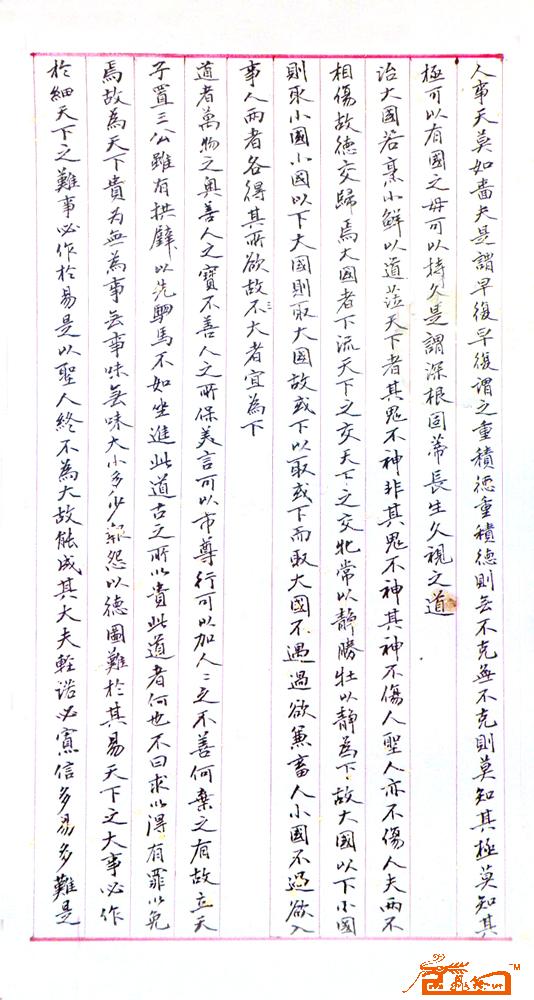 人事天莫如啬夫是謂早復早復謂之重積德重積德則无不克無不克則莫知其極莫知其
極可以有國之母可以持久是謂深根固蒂長生久視之道
治大國若烹小鮮以道莅天下者其鬼不神非其鬼不神其神不傷人聖人亦不傷人夫兩不
相傷故德交歸焉大國者下流天下之交天下之交牝常以静勝牡以静為下故大國以下小國
則取小國小國以下大國則取大國故或下以取或下而取大國不過過欲兼畜人小國不過欲入
事人兩者各得其所欲故不大者宜為下
道者萬物之奥善人之寶不善人之所保美言可以市尊行可以加人人之不善何棄之有故立天
子置三公雖有拱璧以先駟馬不如坐進此道古之所以貴此道者何也不曰求以得有罪以免
焉故為天下貴为無為事无事味無味大小多少報怨以德圖難於其易天下之大事必作
於細天下之難事必作於易是以聖人終不為大故能成其大夫輕諾必寡信多易多難是